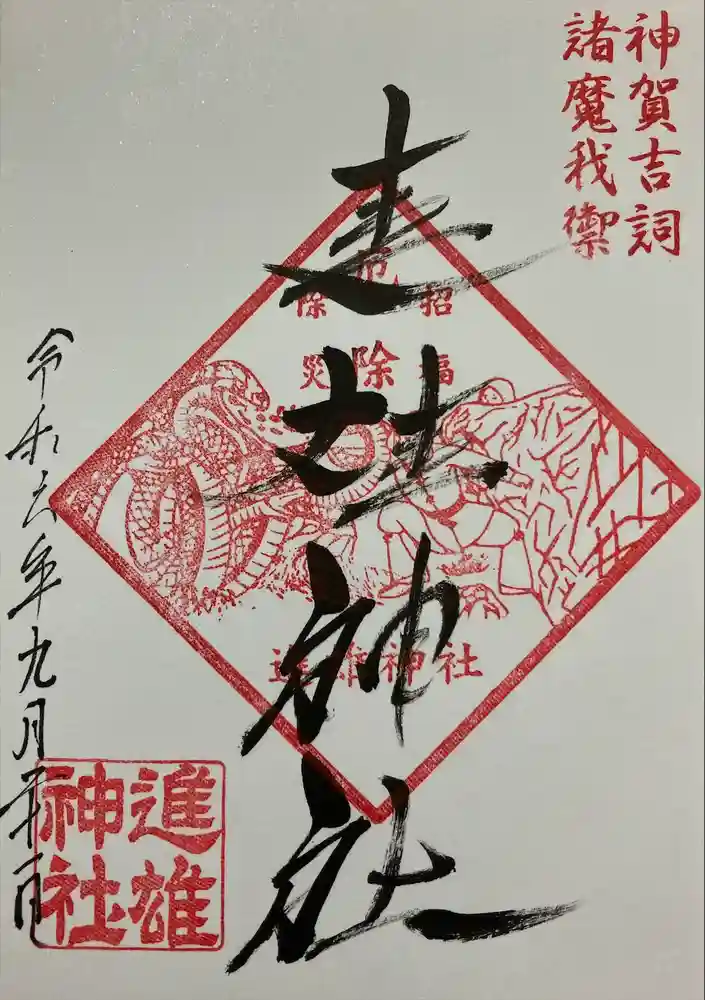 神賀吉詞
諸魔我禦
進雄神社
招福
厄除
除災
進雄神社
令和六年九月
進雄
神社